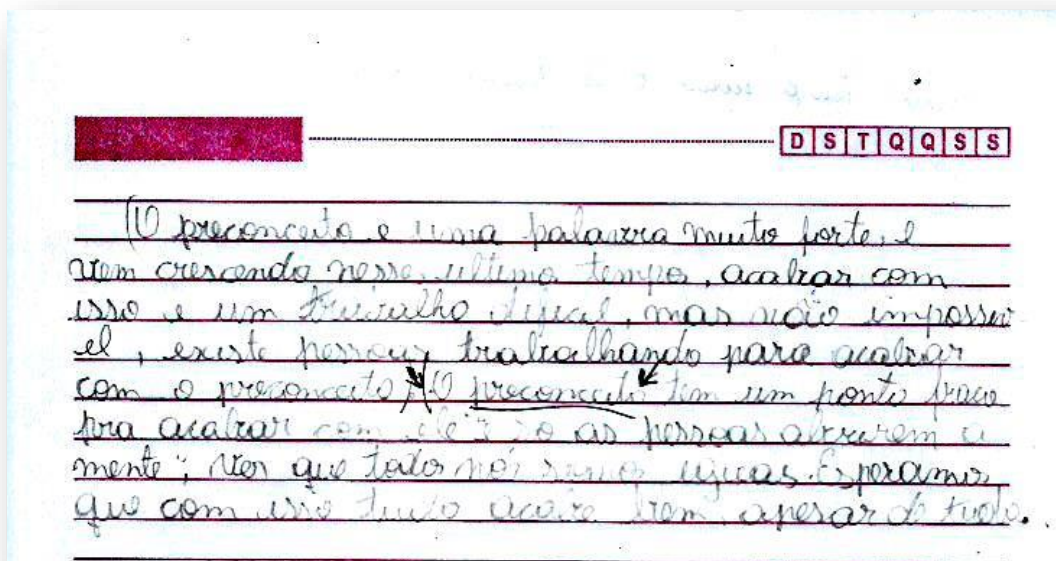 D S T Q Q S S
(O preconceito e uma palavra muito forte, e
vem crescendo nesse ultimo tempo, acabar com
isso e um trabalho dificil, mas não impossiv
el, existe pessoas trabalhando para acabar
com o preconceito.)(O preconceito tem um ponto fraco
pra acabar com ele é so as pessoas abrirem a
mente", ver que todos nós somos iguais. Esperamos
que com isso tudo acabe bem apesar de tudo.